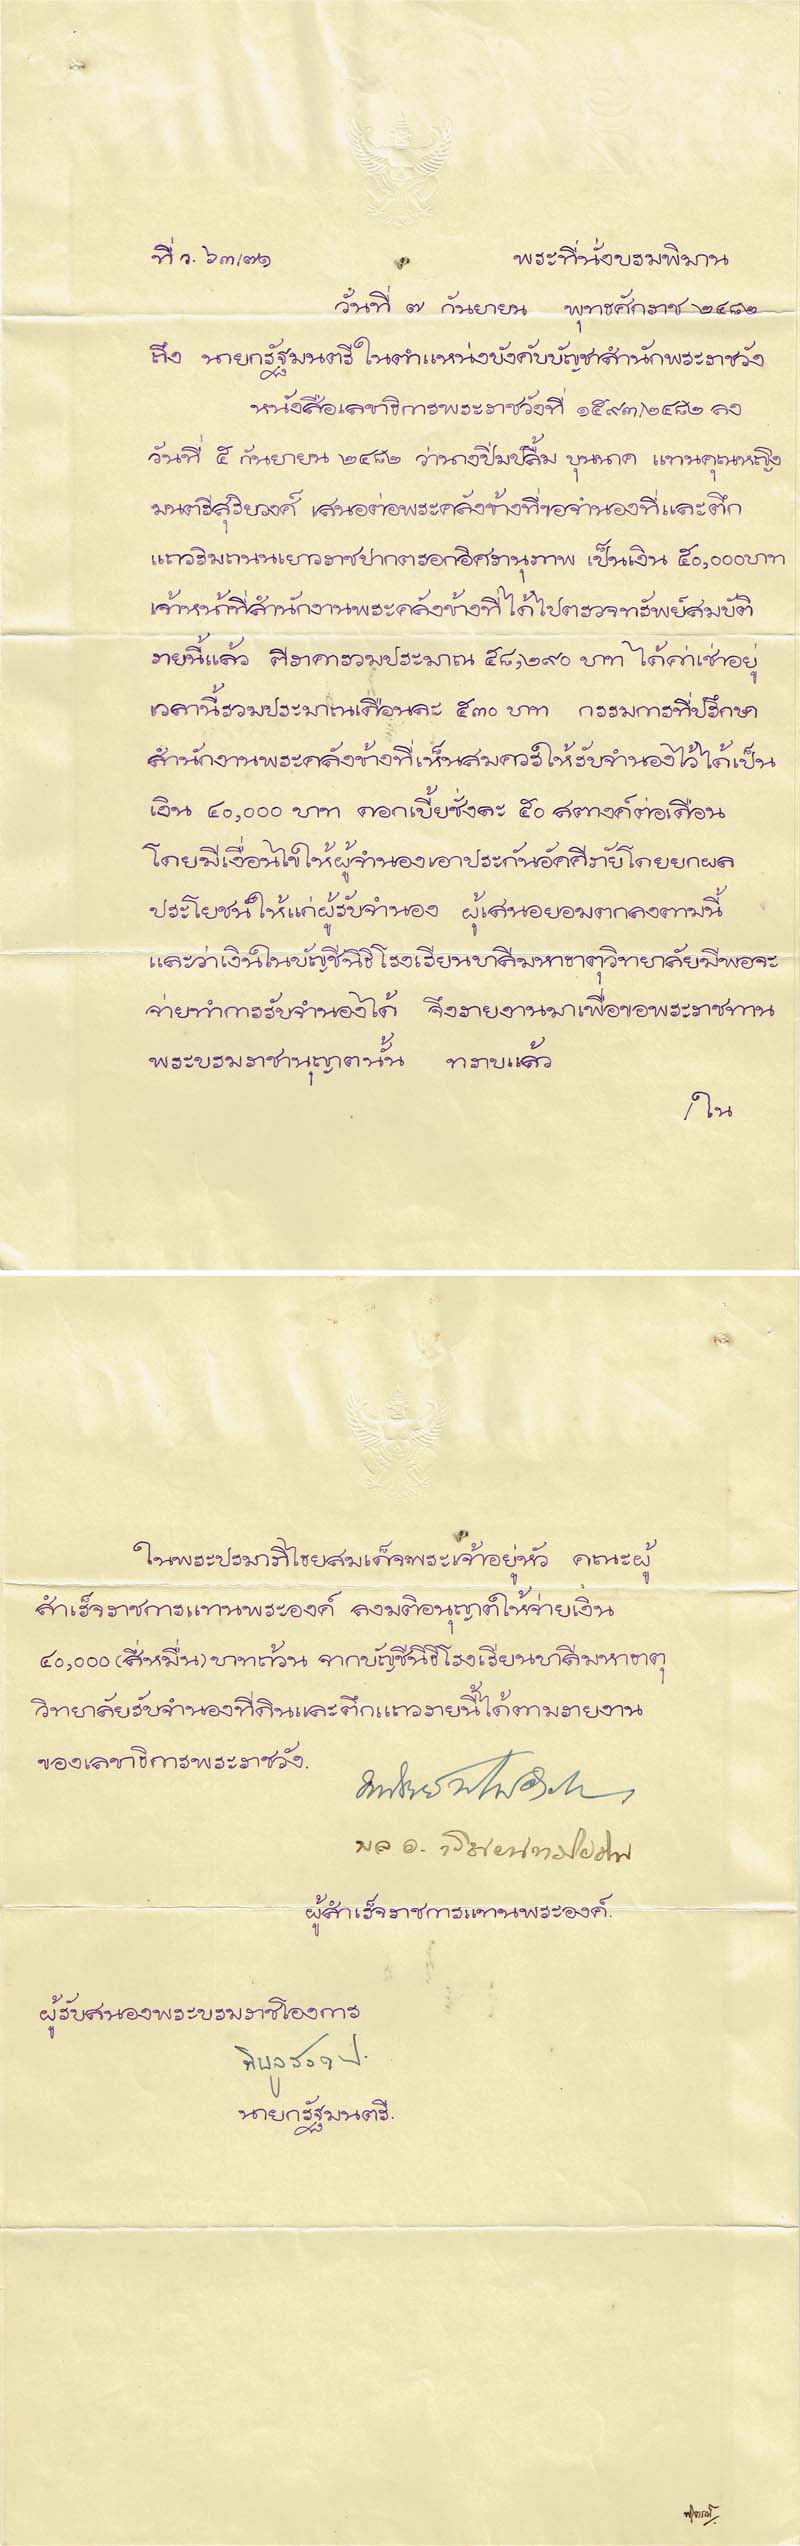 ที่ ว. ๖๓/๗๑ พระที่นั่งบรมพิมาน
วันที่ ๗ กันยายน พุทธศักราช ๒๔๘๒
ถึง นายกรัฐมนตรี ในตำแหน่งบังคับบัญชาสำนักพระราชวัง
หนังสือเลขาธิการพระราชวังที่ ๑๕๙๓/๒๔๘๒ ลง
วันที่ ๕ กันยายน ๒๔๘๒ ว่านางปิ่มปลื้ม บุนนาค แทนคุณหญิง
มนตรีสุริยวงศ์ เสนอต่อพระคลังข้างที่ขอจำนองที่และตึก
แถวริมถนนเยาวราชปากตรอกอิศรานุภาพ เป็นเงิน ๕๐,๐๐๐บาท
เจ้าหน้าที่สำนักงานพระคลังข้างที่ได้ไปตรวจทรัพย์สมบัติ
รายนี้แล้ว ตีราคารวมประมาณ ๕๘,๒๙๐ บาท ได้ค่าเช่าอยู่
เวลานี้รวมประมาณเดือนละ ๕๓๐ บาท กรรมการที่ปรึกษา
สำนักงานพระคลังข้างที่เห็นสมควรให้รับจำนองไว้ได้เป็น
เงิน ๔๐,๐๐๐ บาท ดอกเบี้ยชั่งละ ๕๐ สตางค์ต่อเดือน
โดยมีเงื่อนไขให้ผู้จำนองเอาประกันอัคคีภัยโดยยกผล
ประโยชน์ให้แก่ผู้รับจำนอง ผู้เสนอยอมตกลงตามนี้
และว่าเงินในบัญชีนิธิโรงเรียนบาลีมหาธาตุวิทยาลัยมีพอจะ
จ่ายทำการรับจำนองได้ จึงรายงานมาเพื่อขอพระราชทาน
พระบรมราชานุญาตนั้น ทราบแล้ว
/ใน
ในพระปรมาภิไธยสมเด็จพระเจ้าอยู่หัว คณะผู้
สำเร็จราชการแทนพระองค์ ลงมติอนุญาตให้จ่ายเงิน
๔๐,๐๐๐ (สี่หมื่น) บาทถ้วน จากบัญชีนิธิโรงเรียนบาลีมหาธาตุ
วิทยาลัยรับจำนองที่ดินและตึกแถวรายนี้ได้ตามรายงาน
ของเลขาธิการพระราชวัง.
พล อ.
ผู้สำเร็จราชการแทนพระองค์.
ผู้รับสนองพระบรมราชโองการ
พิบูลสงคราม
นายกรัฐมนตรี.